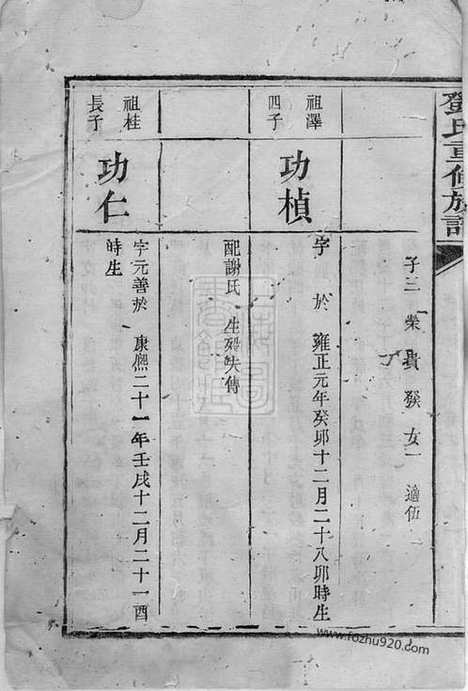 鄧氏重修族譜
子三 榮 貴 發 女一 適伍
祖澤
四子
功楨
字 於 雍正元年癸卯十二月二十八卯時生
配謝氏 生歿失傳
祖桂
長子
功仁
字元善於 康熙二十一年壬戌十二月二十一酉
時生
www.fozhu920.com